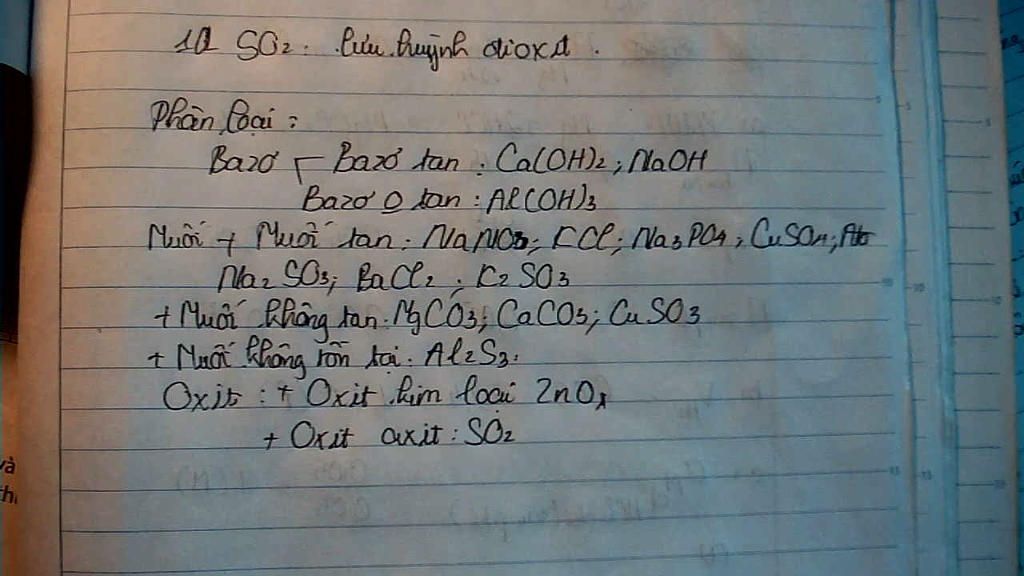 10 SO2. Lưu huỳnh dioxit.
Phân loại:
Bazơ Bazơ tan: Ca(OH)2; NaOH
Bazơ 0 tan: Al(OH)3
Muối + Muối tan: NaNO3; KCl; Na3PO4, CuSO4;
Na2SO3; BaCl2; K2SO3
+ Muối không tan: MgCO3; CaCO3; CuSO3
+ Muối không tồn tại: Al2S3.
Oxit: + Oxit kim loại ZnO,
+ Oxit axit: SO2
và